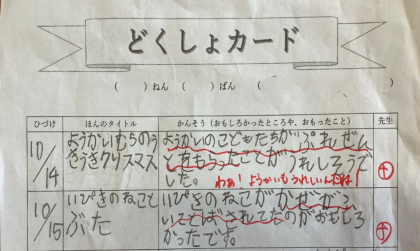 どくしょカード
( )ねん ( )ばん (
ひづけ ほんのタイトル かんそう(おもしろかったところや、おもったこと) 先生
10/14 ようかいむらのう ようかいのこどもたちが、ぷれぜん
きうきクリスマス とをもらったことが うれしそうで
した。 わぁ!ようかいもうれしいんだね!
10/15 いぴきのねこと いぴきのねこがかぜがふ
ぶた いてとばされてたのがおもしろ
かったです。